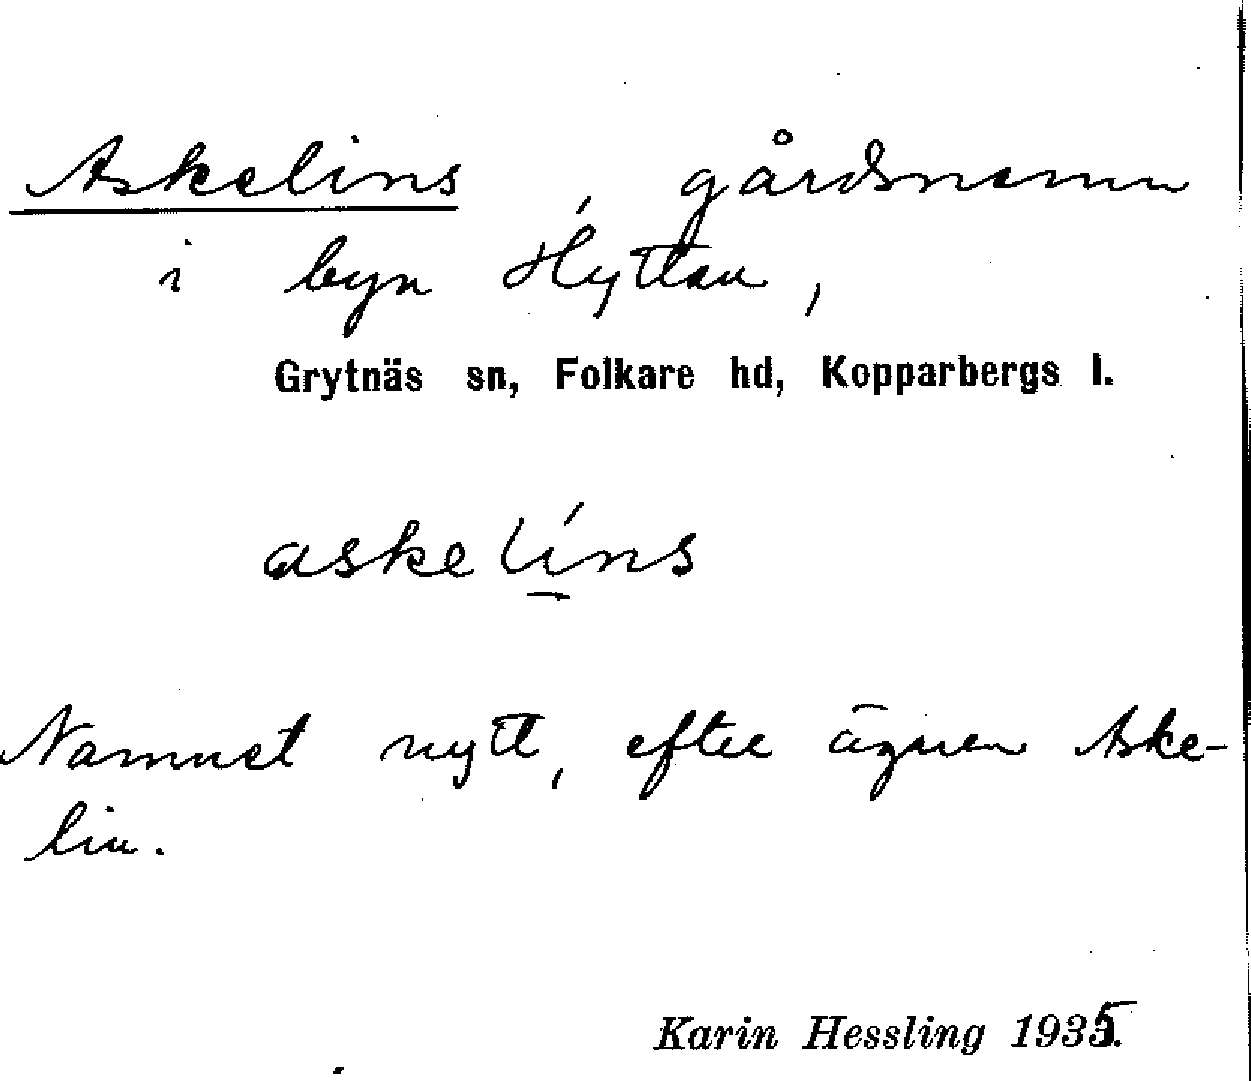 Askelins, gårdsnamn
i byn Hyttan,
Grytnäs sn, Folkare hd, Kopparbergs l.
askelíns
Namnet nytt, efter ägaren Aske-
lin.
Karin Hessling 1935.